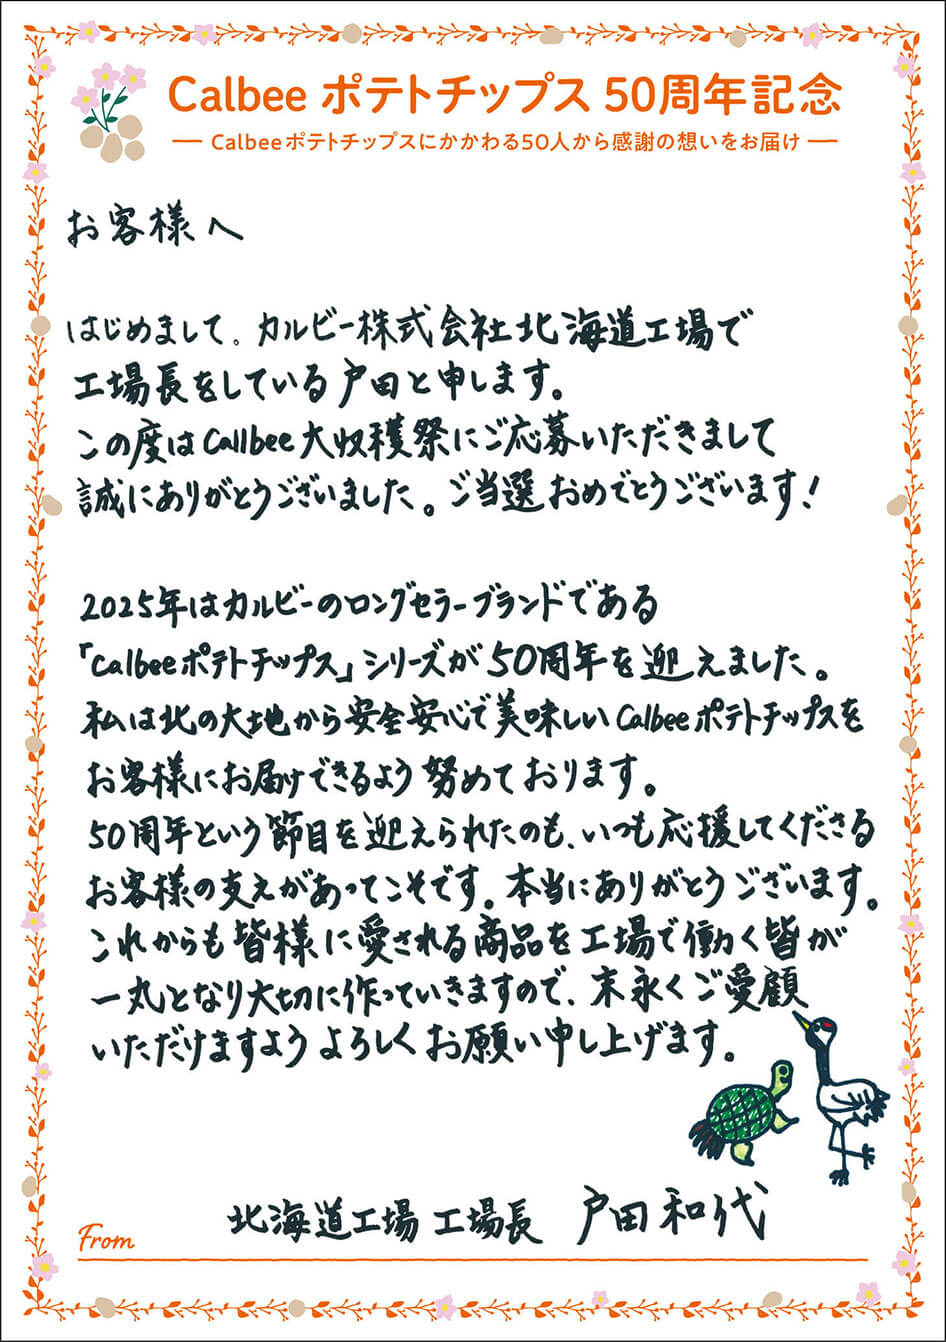 Calbee ポテトチップス 50周年記念
― Calbeeポテトチップスにかかわる50人から感謝の想いをお届け ―
お客様へ
はじめまして。カルビー株式会社北海道工場で
工場長をしている戸田と申します。
この度はCallbee大収穫祭にご応募いただきまして
誠にありがとうございました。ご当選おめでとうございます!
2025年はカルビーのロングセラーブランドである
「Calbeeポテトチップス」シリーズが50周年を迎えました。
私は北の大地から安全安心で美味しいCalbeeポテトチップスを
お客様にお届けできるよう努めております。
50周年という節目を迎えられたのも、いつも応援してくださる
お客様の支えがあってこそです。本当にありがとうございます。
これからも皆様に愛される商品を工場で働く皆が
一丸となり大切に作っていきますので、末永くご愛顧
いただけますようよろしくお願い申し上げます。
北海道工場 工場長 戸田和代
From